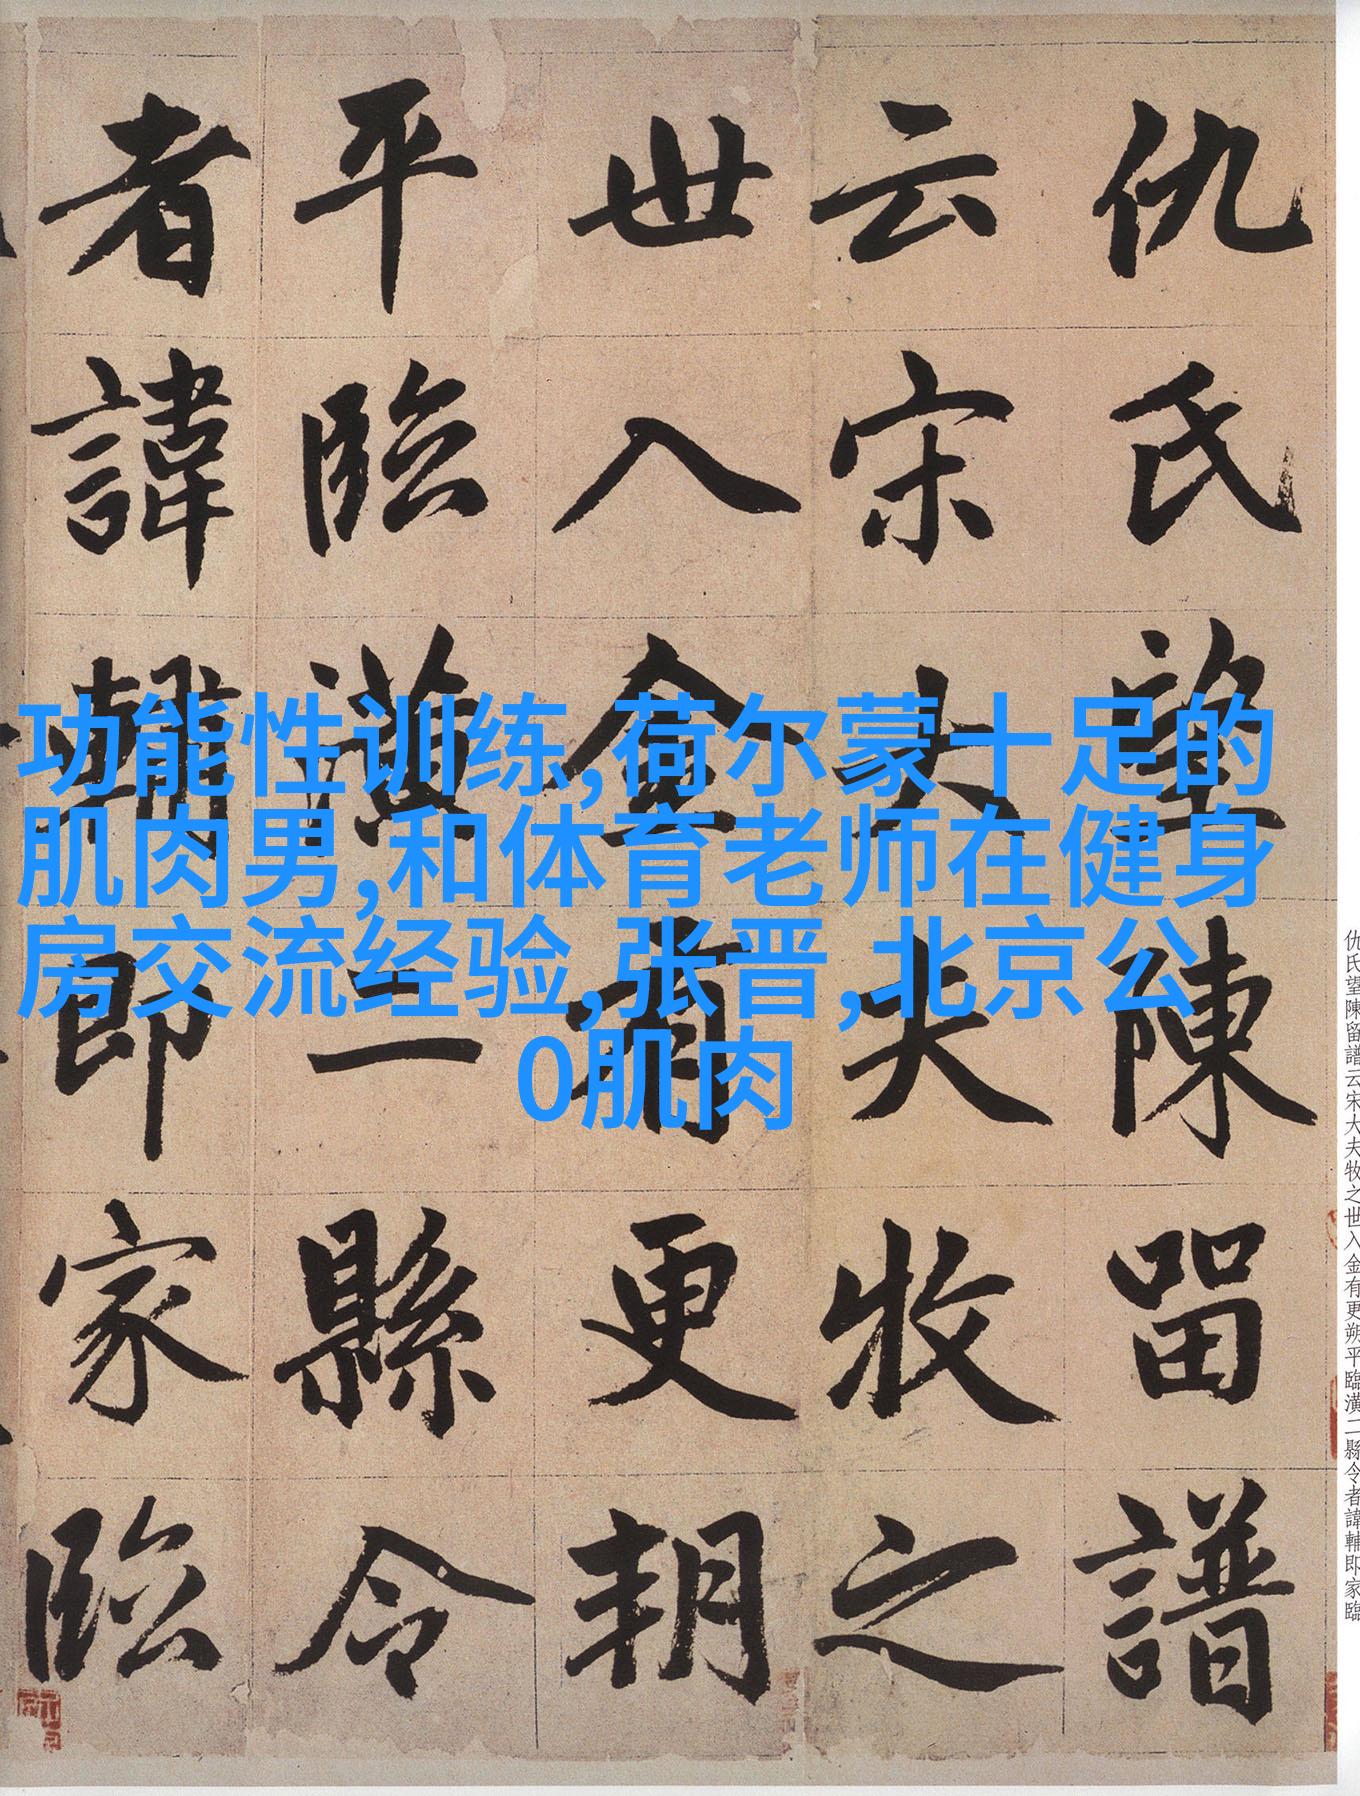 功能性训练,荷尔蒙十足的
肌肉男,和体育老师在健身
房交流经验,张晋,北京公
0肌肉
仇氏望陳留譜
云宋大夫牧之
世入金有更朔
平臨潢二縣令
者諱輔即家臨
仇氏望陳留譜云宋大夫牧之世入金有更朔平臨潢二縣令者諱輔即家臨